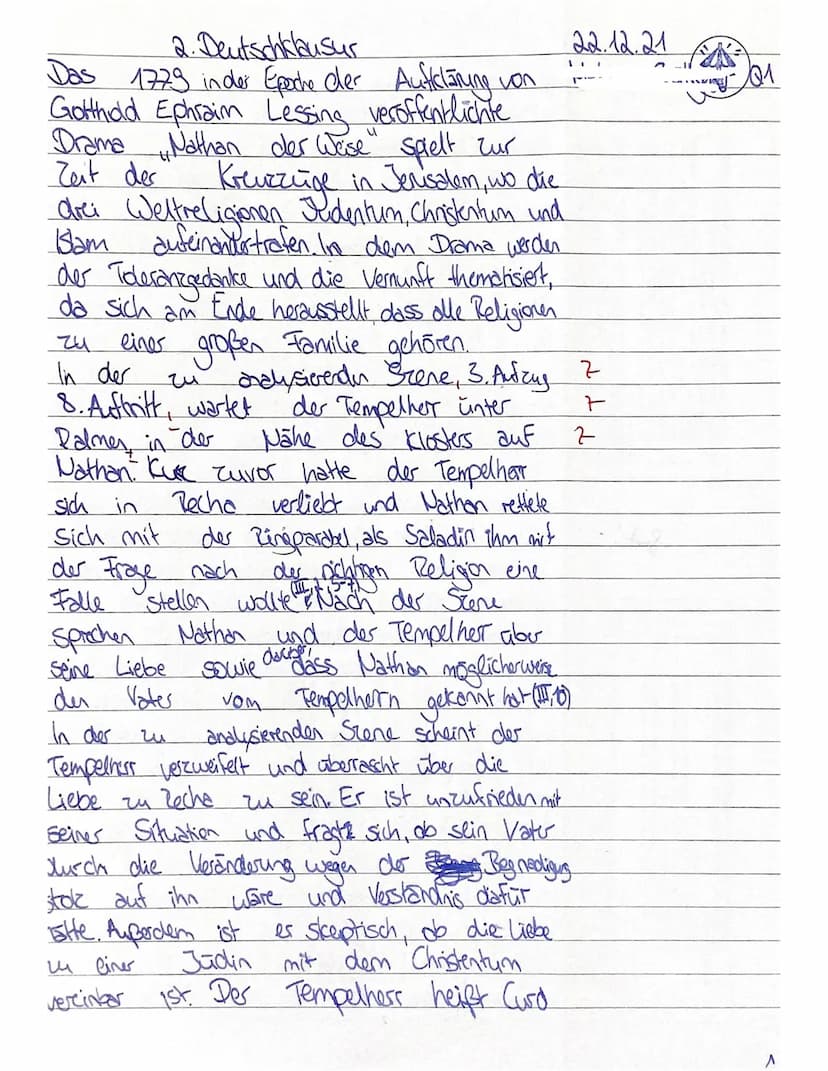 2. Deutschklausur 22.12.21
Das 1779 in der Epoche der Aufklärung von Q1
Gotthold Ephraim Lessing veröffentlichte
Drama „Nathan der Weise" spielt zur
Zeit der Kreuzzüge in Jerusalem, wo die
drei Weltreligionen Judentum, Christentum und
Islam aufeinandertrafen. In dem Drama werden
der Toleranzgedanke und die Vernunft thematisiert,
da sich am Ende herausstellt, dass alle Religionen
zu einer großen Familie gehören.
In der zu analysierenden Szene, 3. Aufzug Z
8. Auftritt, wartet der Tempelherr unter Z
Palmen, in der Nähe des Klosters auf Z
Nathan. Kurz zuvor hatte der Tempelherr
sich in Recha verliebt und Nathan rettete
sich mit der Ringparabel, als Saladin ihm mit
der Frage nach der richtigen Religion eine
Falle stellen wollte (III, 5-7). Nach der Szene
sprechen Nathan und der Tempelherr über
seine Liebe sowie darüber, dass Nathan möglicherweise
den Vater vom Tempelherrn gekannt hat (III, 9)
In der zu analysierenden Szene scheint der
Tempelherr verzweifelt und überrascht über die
Liebe zu Recha zu sein. Er ist unzufrieden mit
seiner Situation und fragt sich, ob sein Vater
durch die Veränderung wegen der Begnadigung
stolz auf ihn wäre und Verständnis dafür
hätte. Außerdem ist er skeptisch, ob die Liebe
zu einer Jüdin mit dem Christentum
vereinbar ist. Der Tempelherr heißt Curd
1